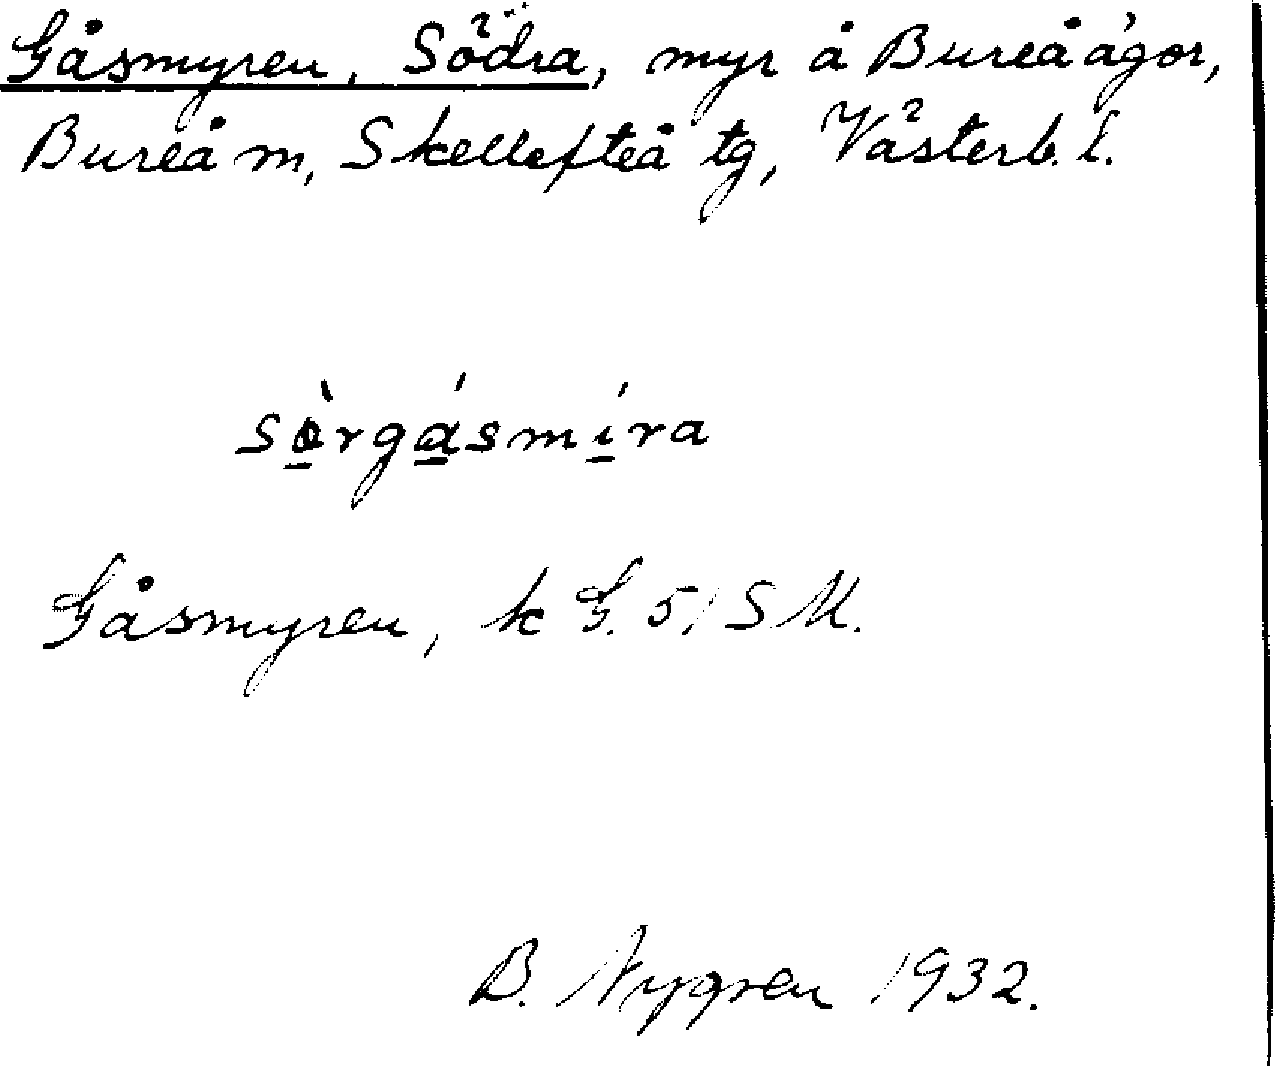 Gåsmyren, Södra, myr å Bureå ägor,
Bureå m, Skellefteå tg, Västerb. l.
sòrgásmíra
Gåsmyren, k G. 51 S M.
B. Nygren 1932.